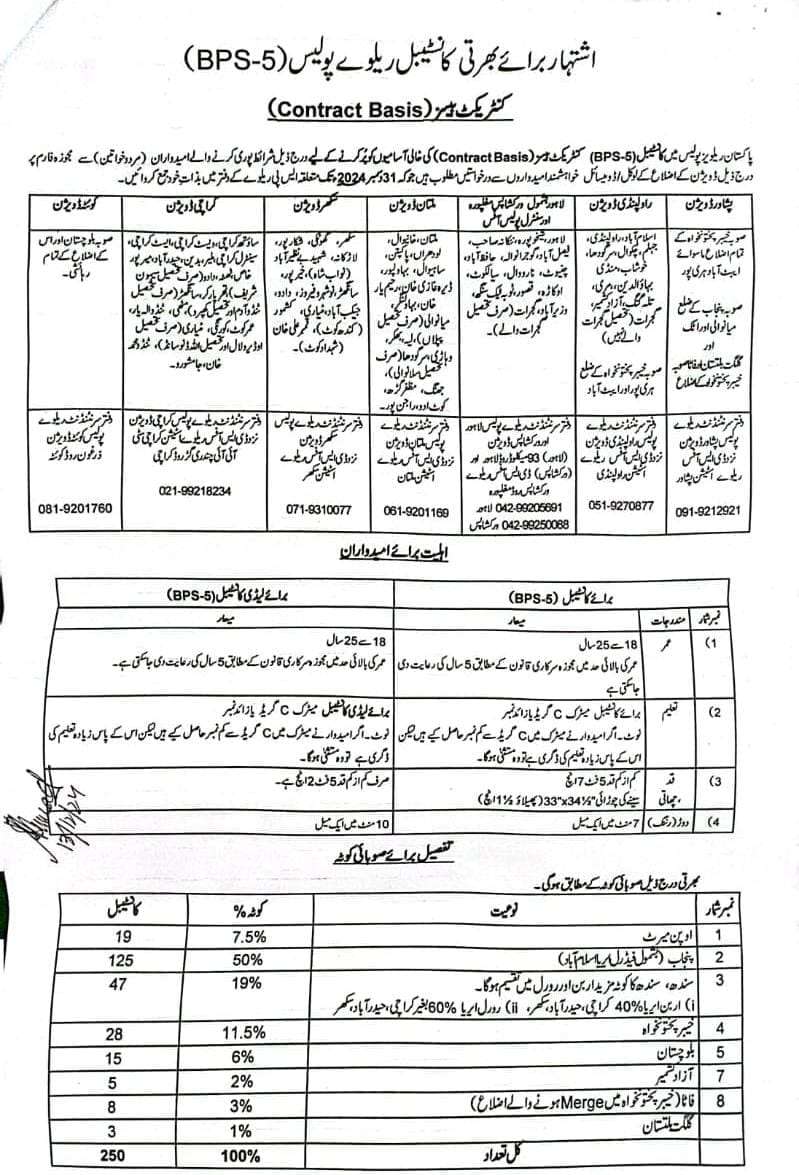 اشتہار برائے بھرتی کانسٹیبل ریلوے پولیس (BPS-5)
کنٹریکٹ بیسز (Contract Basis)
پاکستان ریلویز پولیس میں کانسٹیبل (BPS-5) کنٹریکٹ بیسز (Contract Basis) کی خالی آسامیوں کو پُر کرنے کے لیے درج ذیل شرائط پوری کرنے والے امیدواران (مرد و خواتین) سے مجوزہ فارم پر
درج ذیل ڈویژن کے اضلاع کے لوکل / ڈومیسائل خواہشمند امیدواروں سے درخواستیں مطلوب ہیں جو کہ 31 دسمبر 2024 تک متعلقہ ایس پی ریلوے کے دفتر میں بذات خود جمع کروائیں۔
پشاور ڈویژن
راولپنڈی ڈویژن
لاہور بشمول ورکشاپس مغلپورہ
اور سنٹرل پولیس آفس
ملتان ڈویژن
سکھر ڈویژن
کراچی ڈویژن
کوئٹہ ڈویژن
صوبہ خیبر پختونخواہ کے
تمام اضلاع ماسوائے
ایبٹ آباد ہری پور
صوبہ پنجاب کے ضلع
میانوالی اور اٹک
اور
گلگت بلتستان اور فاٹا صوبہ
خیبر پختونخواہ کے اضلاع
اسلام آباد، راولپنڈی،
جہلم، چکوال، سرگودھا،
خوشاب، منڈی
بہاؤالدین، مری،
تلہ گنگ، آزاد کشمیر،
گجرات (تحصیل گجرات
والے نہیں)
صوبہ خیبر پختونخواہ کے ضلع
ہری پور اور ایبٹ آباد
لاہور، شیخوپورہ، ننکانہ صاحب،
فیصل آباد، گوجرانوالہ، حافظ آباد،
چنیوٹ، نارووال، سیالکوٹ،
اوکاڑہ، قصور، ٹوبہ ٹیک سنگھ،
وزیر آباد، گجرات (صرف تحصیل
گجرات والے)۔
ملتان، خانیوال،
لودھراں، پاکپتن،
ساہیوال، بہاولپور،
ڈیرہ غازی خان، رحیم یار
خان، بہاولنگر،
میانوالی (صرف تحصیل
پپلاں)، لیہ، بھکر،
وہاڑی، سرگودھا (صرف
تحصیل سلانوالی)،
جھنگ، مظفرگڑھ،
کوٹ ادو، راجن پور۔
سکھر، گھوٹکی، شکارپور،
لاڑکانہ، شہید بے نظیر آباد
(نواب شاہ)، خیر پور،
سانگھڑ، نوشہرو فیروز، دادو،
جیکب آباد، مٹیاری، کشمور
(کندھ کوٹ)، قمبر علی خان
(شہداد کوٹ)۔
ساؤتھ کراچی، ویسٹ کراچی، ایسٹ کراچی،
سینٹرل کراچی، ملیر، بدین، حیدر آباد، میر پور
خاص، ٹھٹھہ، دادو، (صرف تحصیل سیہون
شریف)، تھرپارکر، سانگھڑ (صرف تحصیل
ٹنڈو آدم اور تحصیل کھپرو)، مٹھی، ٹنڈو الہ یار،
عمر کوٹ، کورنگی، مٹیاری (صرف تحصیل
اوڈیرو لال اور تحصیل اللہ ڈنو ساند)، ٹنڈو محمد
خان، جامشورو۔
صوبہ بلوچستان اور اس
کے اضلاع کے تمام
رہائشی۔
دفتر سپرنٹنڈنٹ ریلوے
پولیس پشاور ڈویژن
نزد ڈی ایس آفس
ریلوے اسٹیشن پشاور
091-9212921
دفتر سپرنٹنڈنٹ ریلوے
پولیس راولپنڈی ڈویژن
نزد ڈی ایس آفس ریلوے
اسٹیشن راولپنڈی
051-9270877
دفتر سپرنٹنڈنٹ ریلوے پولیس لاہور
اور ورکشاپس ڈویژن
(لاہور) 93-میکلوڈ روڈ لاہور اور
(ورکشاپس) ڈی ایس آفس
ورکشاپس روڈ مغلپورہ
لاہور 042-99205691
ورکشاپس 042-99250068
دفتر سپرنٹنڈنٹ ریلوے
پولیس ملتان ڈویژن
نزد ڈی ایس آفس ریلوے
اسٹیشن ملتان
061-9201169
دفتر سپرنٹنڈنٹ ریلوے پولیس
سکھر ڈویژن
نزد ڈی ایس آفس ریلوے
اسٹیشن سکھر
071-9310077
دفتر سپرنٹنڈنٹ ریلوے پولیس کراچی ڈویژن
نزد ڈی ایس آفس ریلوے اسٹیشن کراچی سٹی
آئی آئی چندریگر روڈ کراچی
021-99218234
دفتر سپرنٹنڈنٹ ریلوے
پولیس کوئٹہ ڈویژن
زرغون روڈ کوئٹہ
081-9201760
اہلیت برائے امیدواران
برائے کانسٹیبل (BPS-5)
برائے لیڈی کانسٹیبل (BPS-5)
نمبر شمار مندرجات معیار معیار
1) عمر
18 سے 25 سال
عمر کی بالائی حد میں مجوزہ سرکاری قانون کے مطابق 5 سال کی رعایت دی
جا سکتی ہے
18 سے 25 سال
عمر کی بالائی حد میں مجوزہ سرکاری قانون کے مطابق 5 سال کی رعایت دی جا سکتی ہے۔
2) تعلیم
برائے کانسٹیبل میٹرک C گریڈ یا زائد نمبر
نوٹ۔ اگر امیدوار نے میٹرک میں C گریڈ سے کم نمبر حاصل کیے ہیں لیکن
اس کے پاس زیادہ تعلیم کی ڈگری ہے تو وہ مستثنیٰ ہوگا۔
برائے لیڈی کانسٹیبل میٹرک C گریڈ یا زائد نمبر
نوٹ۔ اگر امیدوار نے میٹرک میں C گریڈ سے کم نمبر حاصل کیے ہیں لیکن اس کے پاس زیادہ تعلیم کی
ڈگری ہے تو وہ مستثنیٰ ہوگا۔
3) قد
چھاتی،
کم از کم قد 5 فٹ 7 انچ
سینے کی چوڑائی "33"x34½ (پھیلاؤ 1½ انچ)
صرف کم از کم قد 5 فٹ 2 انچ ہے۔
4) دوڑ (رننگ) 7 منٹ میں ایک میل 10 منٹ میں ایک میل
13/12/24
تفصیل برائے صوبائی کوٹہ
بھرتی درج ذیل صوبائی کوٹہ کے مطابق ہوگی۔
نمبر شمار نوعیت کوٹہ % کانسٹیبل
1 اوپن میرٹ 7.5% 19
2 پنجاب (بشمول فیڈرل ایریا اسلام آباد) 50% 125
3 سندھ، سندھ کا کوٹہ مزید اربن اور رورل میں تقسیم ہوگا۔ 19% 47
i) اربن ایریا 40% کراچی، حیدر آباد، سکھر، ii) رورل ایریا 60% بغیر کراچی، حیدر آباد، سکھر
4 خیبر پختونخواہ 11.5% 28
5 بلوچستان 6% 15
7 آزاد کشمیر 2% 5
8 فاٹا (خیبر پختونخواہ میں Merge ہونے والے اضلاع) 3% 8
گلگت بلتستان 1% 3
کل تعداد 100% 250